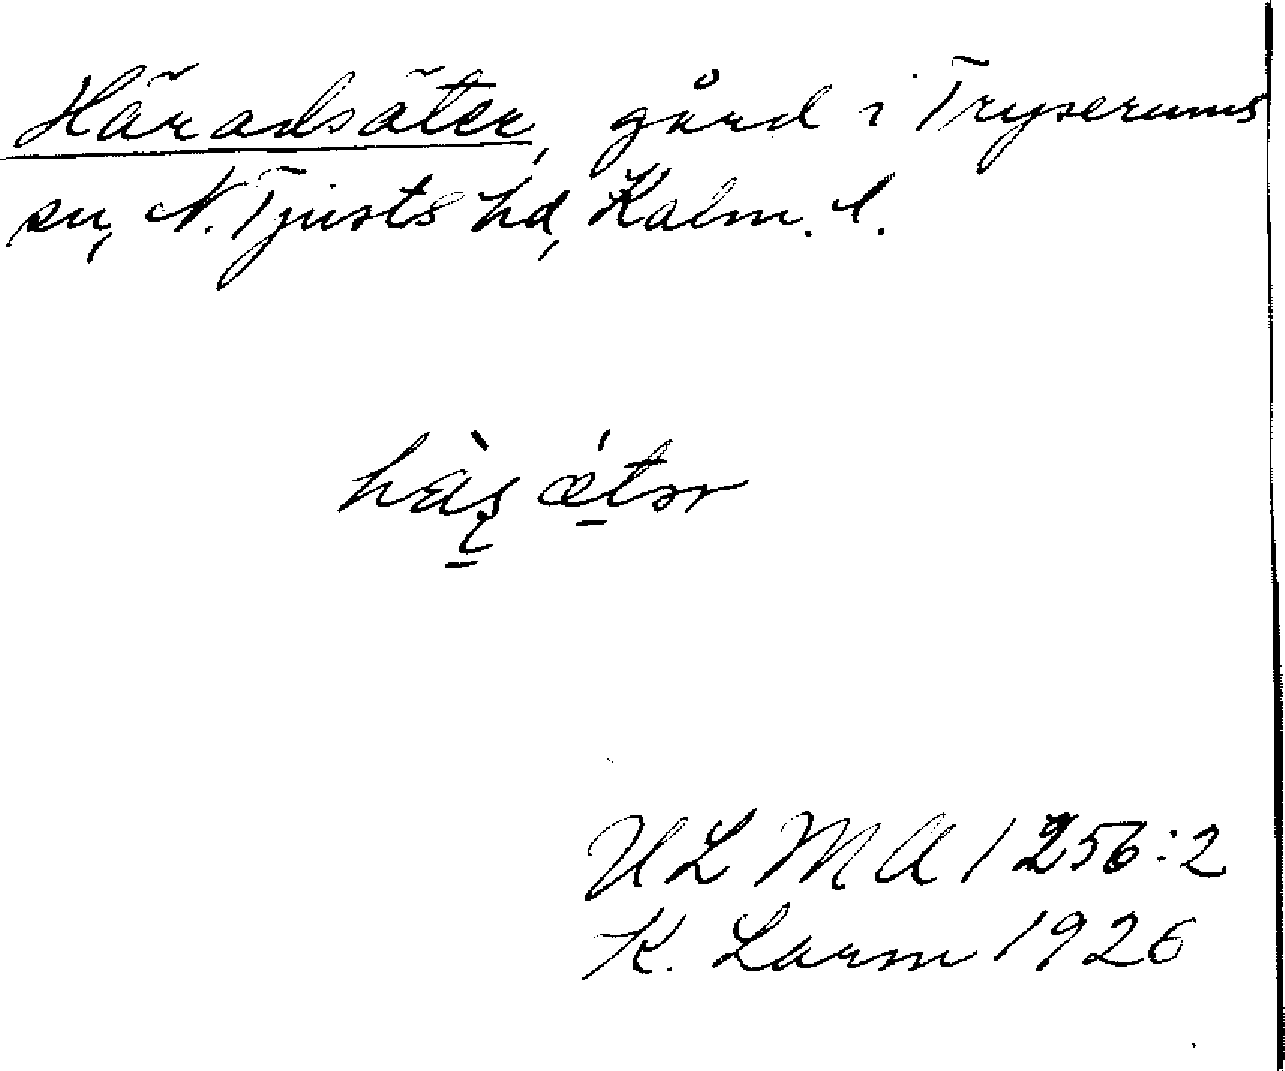 Häradsäter, gård i Tryserums
sn, N. Tjusts hd, Kalm. l.
ULMA 1256:2
K. Larm 1926